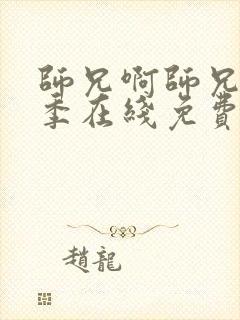 師兄啊師兄
季在綫免費
趙龍